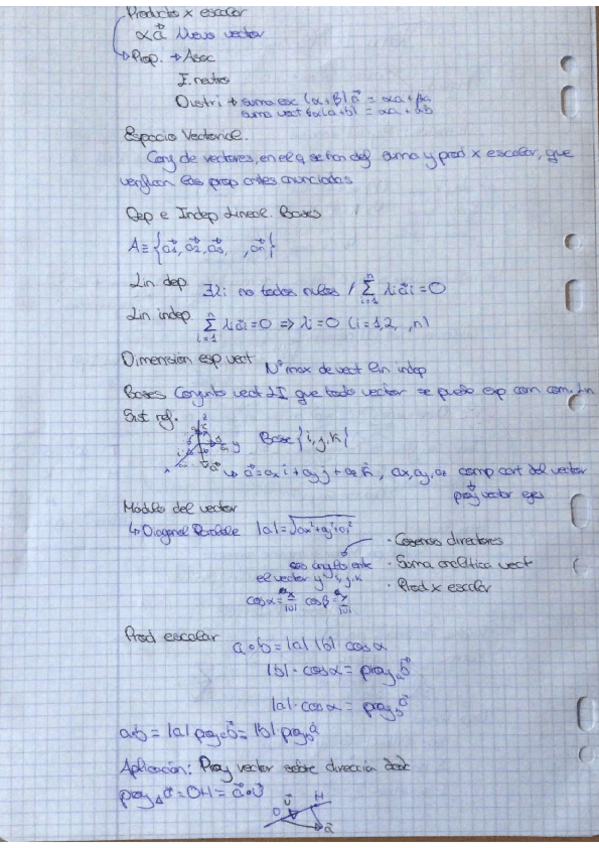 Producto x escalar
αa⃗ Nuevo vector
Prop. → Asoc
E. neutro
Distri → suma esc (α+β)a⃗ = αa + βa
suma vect α(a+b) = αa + αb
Espacio Vectorial.
Conj de vectores, en el q se han def suma y prod x escalar, que
verifican las prop antes anunciadas
Dep e Indep Lineal. Bases
A≡{a⃗1, a⃗2, a⃗3, , a⃗n}
Lin. dep ∃λi no todos nulos / Σ_{i=1}^{n} λi a⃗i = 0
Lin indep Σ_{i=1}^{n} λi a⃗i = 0 => λi = 0 (i=1,2, ,n)
Dimension esp vect Nº max de vect lin indep
Bases Conjunto vect LI que todo vector se puede exp com com. Lin
Sist ref.
z
y
x
Base {i, j, k}
↳ a⃗ = ax i + ay j + az k , ax, ay, az comp cart del vector
proy vector ejes
Modulo del vector
↳ Diagonal |a| = √ax²+ay²+az²
· Cosenos directores
cos angulo ente
· Suma analitica vect
el vector y i, j, k
· Prod x escalar
cosα = ax/|a| cosβ = ay/|a|
Prod escalar
a∘b = |a| |b| cosα
|b|·cosα = proy_a b⃗
|a|·cosα = proy_b a⃗
a·b = |a| proy_a b⃗ = |b| proy_b a⃗
Aplicación: Proy vector sobre dirección dada
proy_Δ a⃗ = OH = a⃗∘u⃗
O u⃗ H
a⃗